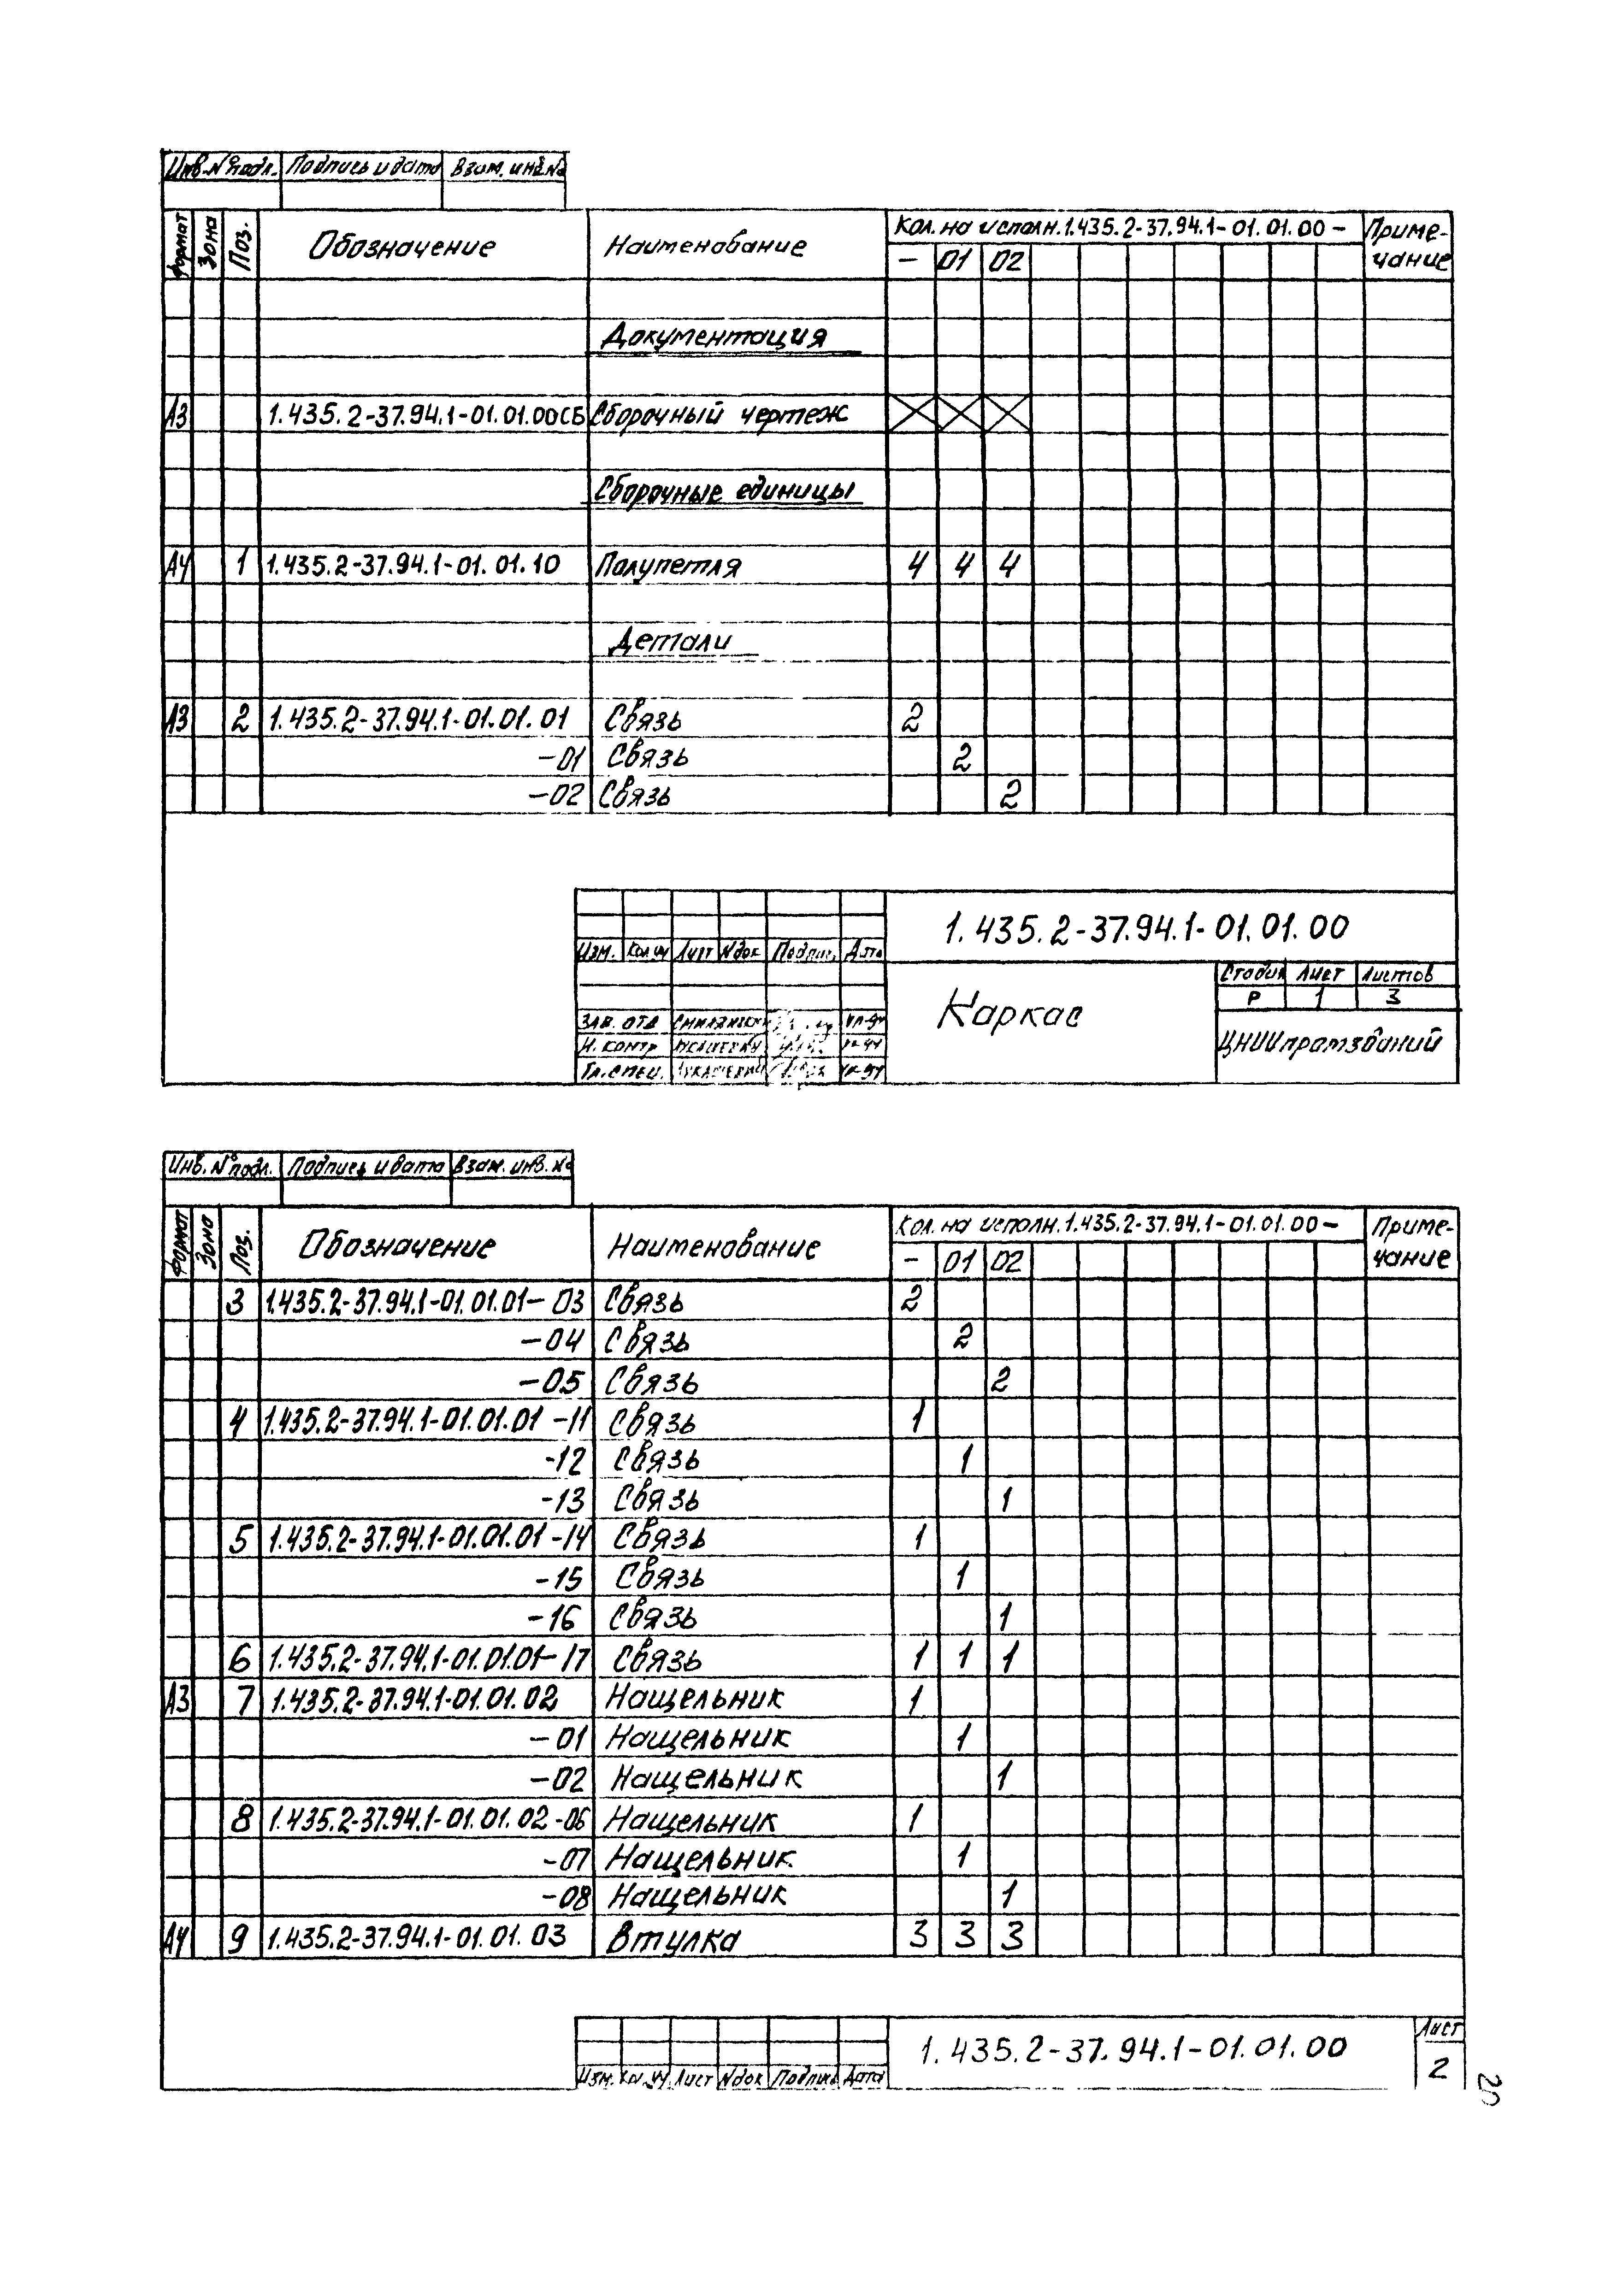 Инв.№подл. Подпись и дата Взам. инв.№
Формат Зона Поз. Обозначение Наименование Кол. на исполн. 1.435.2-37.94.1-01.01.00 – Приме-
– 01 02 чание
Документация
А3 1.435.2-37.94.1-01.01.00СБ Сборочный чертеж
Сборочные единицы
А4 1 1.435.2-37.94.1-01.01.10 Полупетля 4 4 4
Детали
А3 2 1.435.2-37.94.1-01.01.01 Связь 2
-01 Связь 2
-02 Связь 2
1.435.2-37.94.1-01.01.00
Изм. Кол.уч Лист Nдок Подпис. Дата
Стадия Лист Листов
Каркас Р 1 3
Зав. отд
Н. контр
Гл. спец.
ЦНИИпромзданий
Инв. №подл. Подпись и дата Взам. инв. №
Формат Зона Поз. Обозначение Наименование Кол. на исполн. 1.435.2-37.94.1-01.01.00 – Приме-
– 01 02 чание
3 1.435.2-37.94.1-01.01.01-03 Связь 2
-04 Связь 2
-05 Связь 2
4 1.435.2-37.94.1-01.01.01-11 Связь 1
-12 Связь 1
-13 Связь 1
5 1.435.2-37.94.1-01.01.01-14 Связь 1
-15 Связь 1
-16 Связь 1
6 1.435.2-37.94.1-01.01.01-17 Связь 1 1 1
А3 7 1.435.2-37.94.1-01.01.02 Нащельник 1
-01 Нащельник 1
-02 Нащельник 1
8 1.435.2-37.94.1-01.01.02-06 Нащельник 1
-07 Нащельник 1
-08 Нащельник 1
А4 9 1.435.2-37.94.1-01.01.03 Втулка 3 3 3
1.435.2-37.94.1-01.01.00 Лист
Изм. Кол.уч Лист Nдок Подпись Дата 2
20